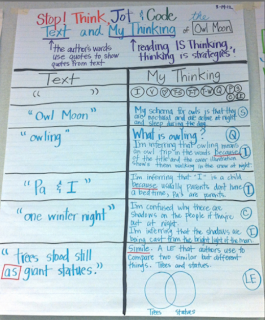 Stop! Think, Jot & Code the
Text and My Thinking of Owl Moon
the author's words
use quotes to show
quotes from text
reading IS Thinking
Thinking is strategies
Text
My Thinking
"Owl Moon"
My schema for owls is that they
are nocturnal and are active at night
and sleep during the day.
"owling"
What is owling?
I'm inferring that owling means
an owl trip in the woods because
of the title and the cover illustration
shows them walking in the snow at night
"Pa & I"
I'm inferring that "I" is a child
because usually parents don't have
a bedtime,
are parents
"one winter night"
I'm confused why there are
shadows on the people if they're
out at night.
I'm inferring that the shadows are
being cast from the bright light of the moon.
"trees stood still
as giant statues."
Simile: A LF that authors use to
compare two similar but different
things. Trees and statues.
Trees Statues
LF